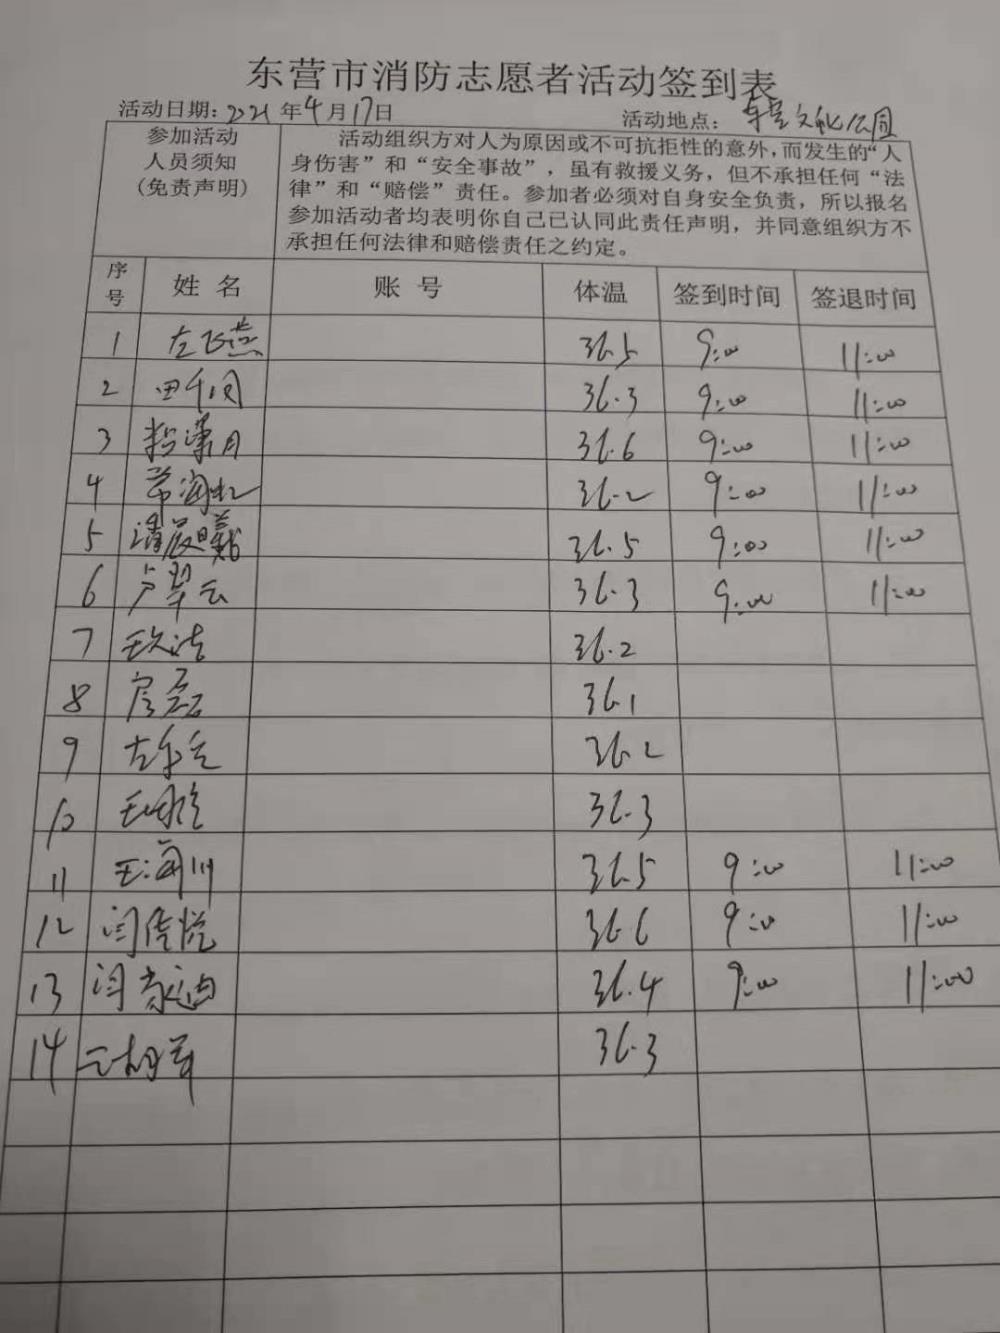 东营市消防志愿者活动签到表
活动日期：2021年4月17日 活动地点：东营文化公园
参加活动
人员须知
(免责声明)
活动组织方对人为原因或不可抗拒性的意外,而发生的“人
身伤害”和“安全事故”，虽有救援义务，但不承担任何“法
律”和“赔偿”责任。参加者必须对自身安全负责，所以报名
参加活动者均表明你自己已认同此责任声明，并同意组织方不
承担任何法律和赔偿责任之约定。
序号 姓名 账号 体温 签到时间 签退时间
1 左飞燕 36.5 9:00 11:00
2 36.3 9:00 11:00
3 36.6 9:00 11:00
4 36.2 9:00 11:00
5 清晨曦 36.5 9:00 11:00
6 36.3 9:00 11:00
7 36.2
8 房磊 36.1
9 36.2
10 36.3
11 王海川 36.5 9:00 11:00
12 闫佳悦 36.6 9:00 11:00
13 36.4 9:00 11:00
14 36.3